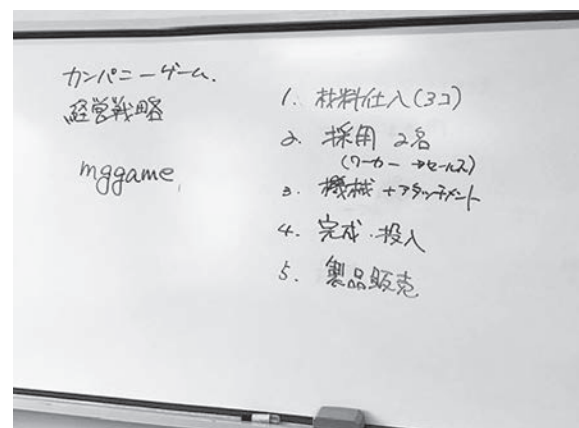 カンパニーゲーム.
経営戦略
mggame
1. 材料仕入(3コ)
2. 採用 2名
(ワーカー →セールス)
3. 機械 +アタッチメント
4. 完成・投入
5. 製品販売